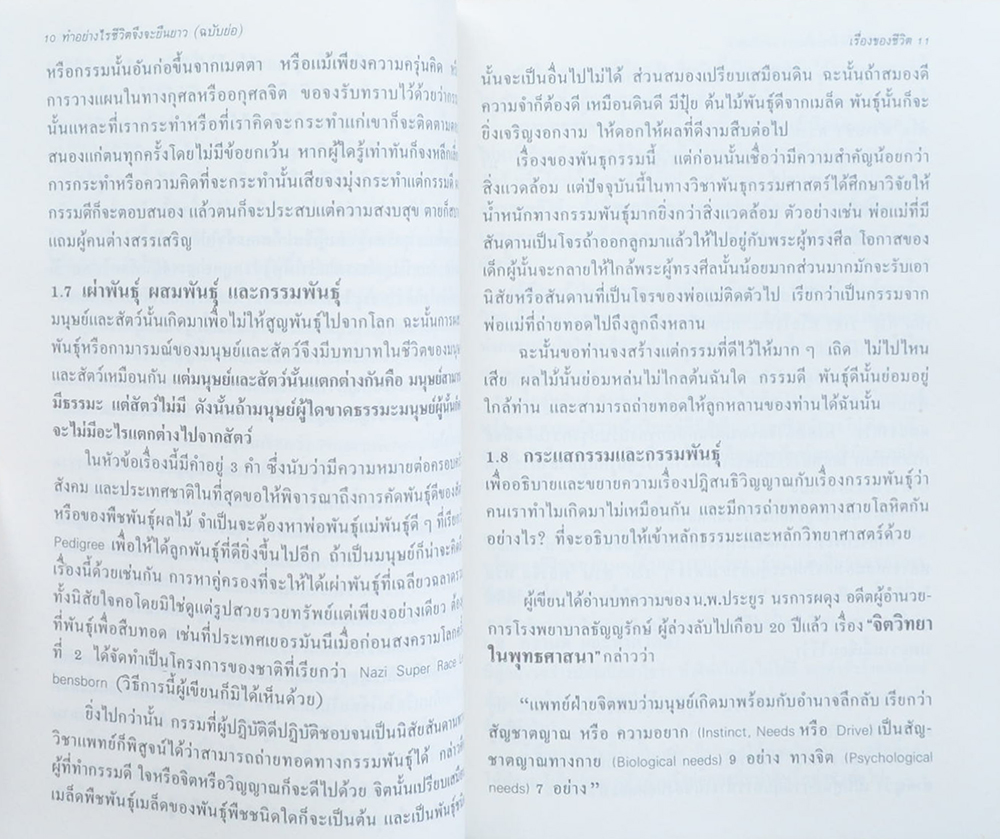 10 ทำอย่างไรชีวิตจึงจะยืนยาว (ฉบับย่อ)
หรือกรรมนั้นอันก่อขึ้นจากเมตตา หรือแม้เพียงความครุ่นคิด
การวางแผนในทางกุศลหรืออกุศลจิต ขอจงรับทราบไว้ด้วยว่า
นั้นแหละที่เรากระทำหรือที่เราคิดจะกระทำแก่เขาก็จะติดตาม
สนองแก่ตนทุกครั้งโดยไม่มีข้อยกเว้น หากผู้ใดรู้เท่าทันก็จง
การกระทำหรือความคิดที่จะกระทำนั้นเสียจงมุ่งกระทำแต่กรรมดี
กรรมดีก็จะตอบสนอง แล้วตนก็จะประสบแต่ความสงบสุข
แถมผู้คนต่างสรรเสริญ
1.7 เผ่าพันธุ์ ผสมพันธุ์ และกรรมพันธุ์
มนุษย์และสัตว์นั้นเกิดมาเพื่อไม่ให้สูญพันธุ์ไปจากโลก ฉะนั้น
พันธุ์หรือกามารมณ์ของมนุษย์และสัตว์จึงมีบทบาทในชีวิตของ
และสัตว์เหมือนกัน แต่มนุษย์และสัตว์นั้นแตกต่างกันคือ
มีธรรมะ แต่สัตว์ไม่มี ดังนั้นถ้ามนุษย์ผู้ใดขาดธรรมะมนุษย์ผู้นั้น
จะไม่มีอะไรแตกต่างไปจากสัตว์
ในหัวข้อเรื่องนี้มีคำอยู่ 3 คำ ซึ่งนับว่ามีความหมายต่อ
สังคม และประเทศชาติในที่สุดขอให้พิจารณาถึงการคัดพันธุ์ดีของ
หรือของพืชพันธุ์ผลไม้ จำเป็นจะต้องหาพ่อพันธุ์แม่พันธุ์ดี ๆ ที่
Pedigree เพื่อให้ได้ลูกพันธุ์ที่ดียิ่งขึ้นไปอีก ถ้าเป็นมนุษย์ก็น่าจะ
เรื่องนี้ด้วยเช่นกัน การหาคู่ครองที่จะให้ได้เผ่าพันธุ์ที่เฉลียวฉลาด
ทั้งนิสัยใจคอโดยมิใช่ดูแต่รูปสวยรวยทรัพย์แต่เพียงอย่างเดียว
ที่พันธุ์เพื่อสืบทอด เช่นที่ประเทศเยอรมันนีเมื่อก่อนสงคราม
ที่ 2 ได้จัดทำเป็นโครงการของชาติที่เรียกว่า Nazi Super Race
bensborn (วิธีการนี้ผู้เขียนก็มิได้เห็นด้วย)
ยิ่งไปกว่านั้น กรรมที่ผู้ปฏิบัติดีปฏิบัติชอบจนเป็นนิสัยสันดาน
วิชาแพทย์ก็พิสูจน์ได้ว่าสามารถถ่ายทอดทางกรรมพันธุ์ได้
ผู้ที่ทำกรรมดี ใจหรือจิตหรือวิญญาณก็จะดีไปด้วย จิตนั้นเปรียบ
เมล็ดพืชพันธุ์เมล็ดของพันธุ์พืชชนิดใดก็จะเป็นต้น และเป็นพันธุ์
เรื่องของชีวิต 11
นั้นจะเป็นอื่นไปไม่ได้ ส่วนสมองเปรียบเสมือนดิน ฉะนั้นถ้าสมองดี
ความจำก็ต้องดี เหมือนดินดี มีปุ๋ย ต้นไม้พันธุ์ดีจากเมล็ด พันธุ์นั้นก็จะ
ยิ่งเจริญงอกงาม ให้ดอกให้ผลที่ดีงามสืบต่อไป
เรื่องของพันธุกรรมนี้ แต่ก่อนนั้นเชื่อว่ามีความสำคัญน้อยกว่า
สิ่งแวดล้อม แต่ปัจจุบันนี้ในทางวิชาพันธุกรรมศาสตร์ได้ศึกษาวิจัยให้
น้ำหนักทางกรรมพันธุ์มากยิ่งกว่าสิ่งแวดล้อม ตัวอย่างเช่น พ่อแม่ที่มี
สันดานเป็นโจรถ้าออกลูกมาแล้วให้ไปอยู่กับพระผู้ทรงศีล โอกาสของ
เด็กผู้นั้นจะกลายให้ใกล้พระผู้ทรงศีลนั้นน้อยมากส่วนมากมักจะรับเอา
นิสัยหรือสันดานที่เป็นโจรของพ่อแม่ติดตัวไป เรียกว่าเป็นกรรมจาก
พ่อแม่ที่ถ่ายทอดไปถึงลูกถึงหลาน
ฉะนั้นขอท่านจงสร้างแต่กรรมที่ดีไว้ให้มาก ๆ เถิด ไม่ไปไหน
เสีย ผลไม้นั้นย่อมหล่นไม่ไกลต้นฉันใด กรรมดี พันธุ์ดีนั้นย่อมอยู่
ใกล้ท่าน และสามารถถ่ายทอดให้ลูกหลานของท่านได้ฉันนั้น
1.8 กระแสกรรมและกรรมพันธุ์
เพื่ออธิบายและขยายความเรื่องปฎิสนธิวิญญาณกับเรื่องกรรมพันธุ์ว่า
คนเราทำไมเกิดมาไม่เหมือนกัน และมีการถ่ายทอดทางสายโลหิตกัน
อย่างไร? ที่จะอธิบายให้เข้าหลักธรรมะและหลักวิทยาศาสตร์ด้วย
ผู้เขียนได้อ่านบทความของ น.พ.ประยูร นรการผดุง อดีตผู้อำนวย-
การโรงพยาบาลธัญญรักษ์ ผู้ล่วงลับไปเกือบ 20 ปีแล้ว เรื่อง "จิตวิทยา
ในพุทธศาสนา" กล่าวว่า
"แพทย์ฝ่ายจิตพบว่ามนุษย์เกิดมาพร้อมกับอำนาจลึกลับ เรียกว่า
สัญชาตญาณ หรือ ความอยาก (Instinct, Needs หรือ Drive) เป็นสัญ-
ชาตญาณทางกาย (Biological needs) 9 อย่าง ทางจิต (Psychological
needs) 7 อย่าง"